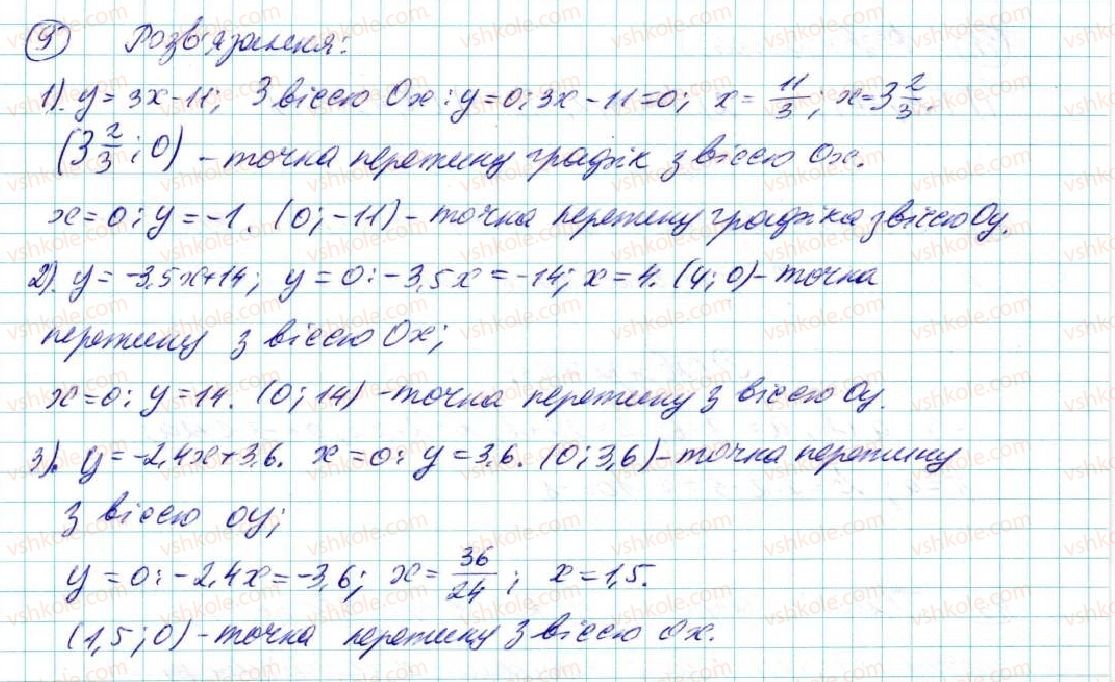 9) Розв'язання:
1). y = 3x - 11; З віссю Ox: y = 0: 3x - 11 = 0; x = 11/3; x = 3 2/3.
(3 2/3; 0) - точка перетину графік з віссю Ox.
x = 0: y = -1. (0; -11) - точка перетину графіка з віссю Oy.
2). y = -3,5x + 14; y = 0: -3,5x = -14; x = 4. (4; 0) - точка
перетину з віссю Ox;
x = 0: y = 14. (0; 14) - точка перетину з віссю Oy.
3). y = -2,4x + 3,6. x = 0: y = 3,6. (0; 3,6) - точка перетину
з віссю oy;
y = 0: -2,4x = -3,6; x = 36/24; x = 1,5.
(1,5; 0) - точка перетину з віссю Ox.
vshkole.com